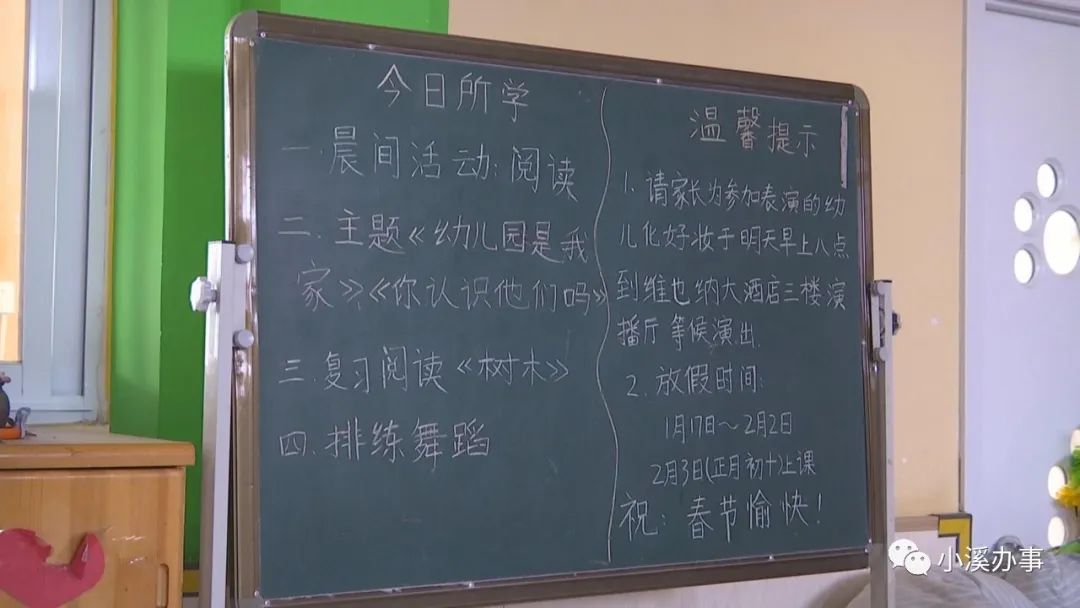 今日所学
一.晨间活动:阅读
二.主题《幼儿园是我
家》《你认识他们吗》
三.复习阅读《树木》
四.排练舞蹈
温馨提示
1.请家长为参加表演的幼
儿化好妆于明天早上八点
到维也纳大酒店三楼演
播厅等候演出.
2.放假时间:
1月17日～2月2日
2月3日(正月初十)上课
祝:春节愉快!
小溪办事